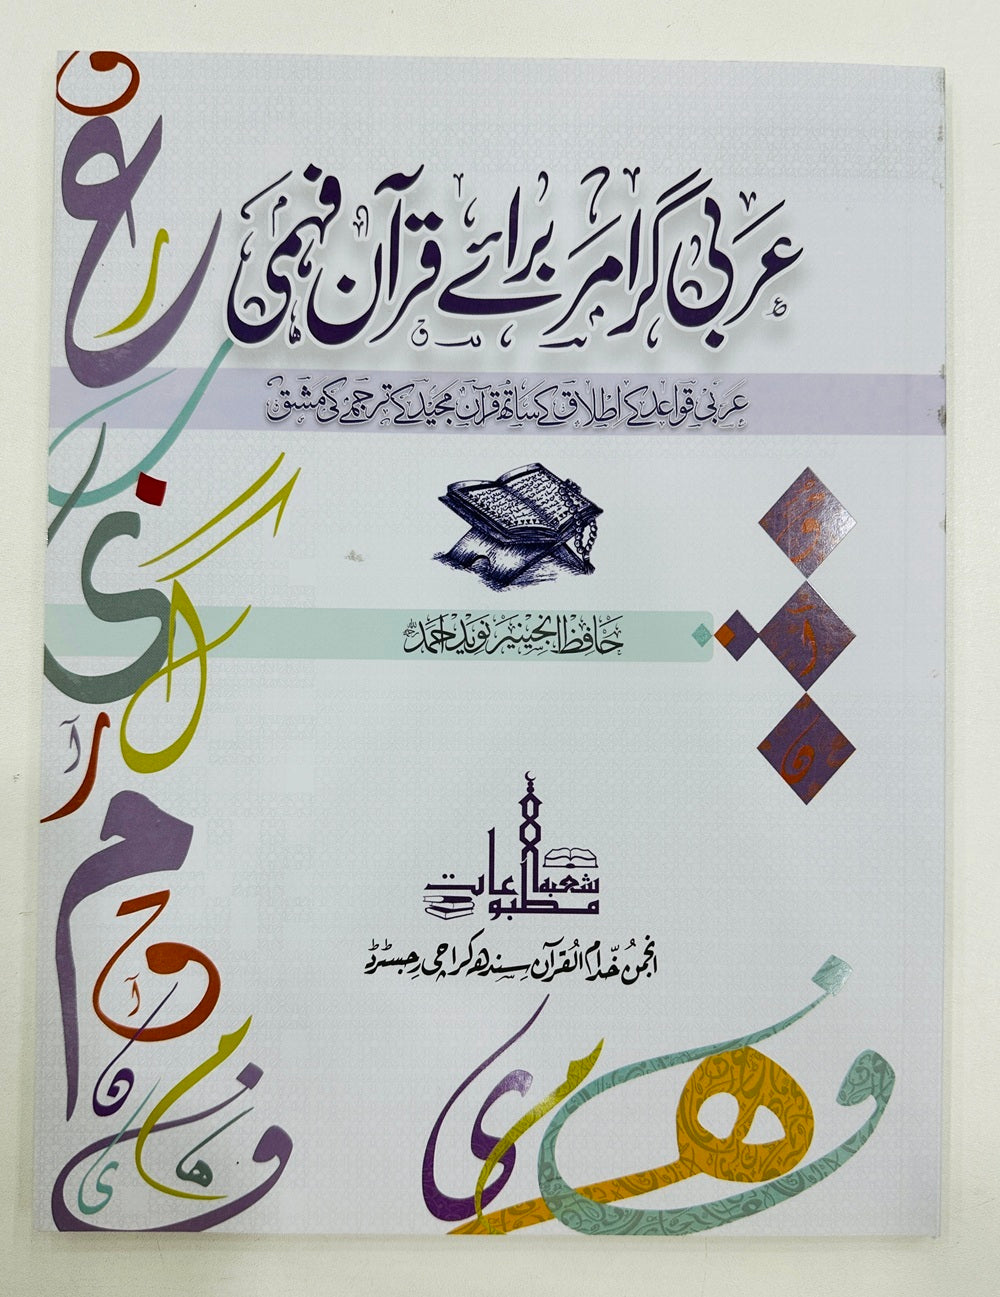 عربی گرامر برائے قرآن فہمی
عربی قواعد کے اطلاق کے ساتھ قرآن مجید کے ترجمے کی مشق
حافظ انجینیر نوید احمدؒ
شعبہ
مطبوعات
انجمن خُدّام القُرآن سندھ کراچی رجسٹرڈ